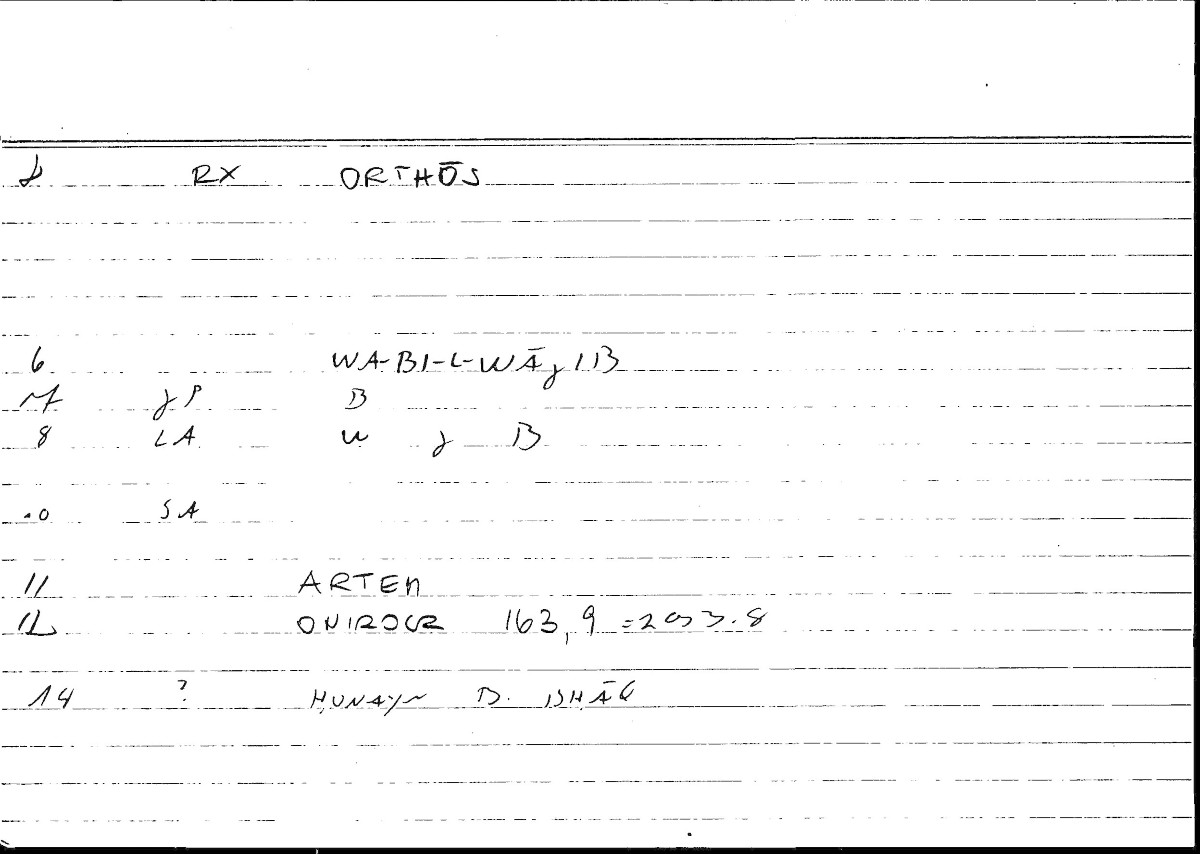 RX ORTHŌS
6 WA-BI-L-WĀJIB
7 JP B
8 LA W J B
10 SA
11 ARTEM
12 ONIROCR 163,9 = 293.8
14 ? ḤUNAYN B. ISḤĀQ